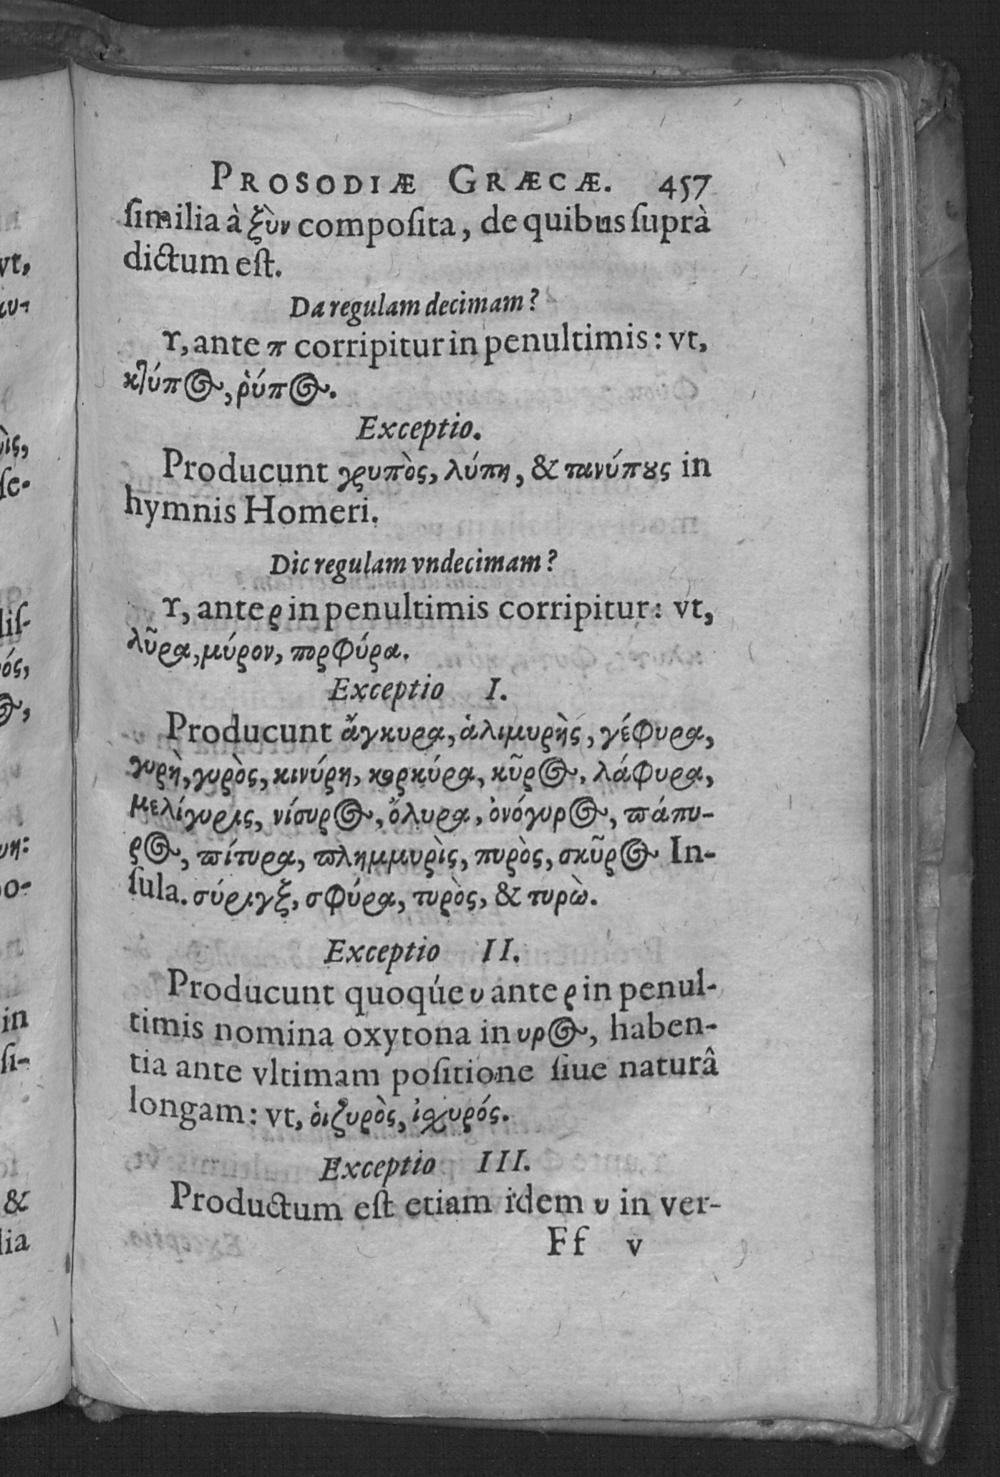 PROSODIÆ GRÆCÆ. 457
ſimilia à ξὺν compoſita, de quibus ſuprà
dictum eſt.
Da regulam decimam?
Υ, ante π corripitur in penultimis: vt,
κτύπος, ῥύπος.
Exceptio.
Producunt γρυπὸς, λύπη, & τανύπους in
hymnis Homeri.
Dic regulam vndecimam?
Υ, ante ρ in penultimis corripitur: vt,
λῦρα, μύρον, πορφύρα.
Exceptio I.
Producunt ἄγκυρα, ἁλιμυρὴς, γέφυρα,
γυρὴ, γυρὸς, κινύρη, κερκύρα, κῦρος, λάφυρα,
μελίγυρις, νίσυρος, ὄλυρα, ὀνόγυρος, πάπυ-
ρος, πίτυρα, πλημμυρὶς, πυρὸς, σκῦρος In-
ſula. σύριγξ, σφύρα, τυρὸς, & τυρὼ.
Exceptio II.
Producunt quoqúe υ ante ρ in penul-
timis nomina oxytona in υρος, haben-
tia ante vltimam poſitione ſiue naturâ
longam: vt, ὁιζυρὸς, ἰσχυρός.
Exceptio III.
Productum eſt etiam idem υ in ver-
Ff v